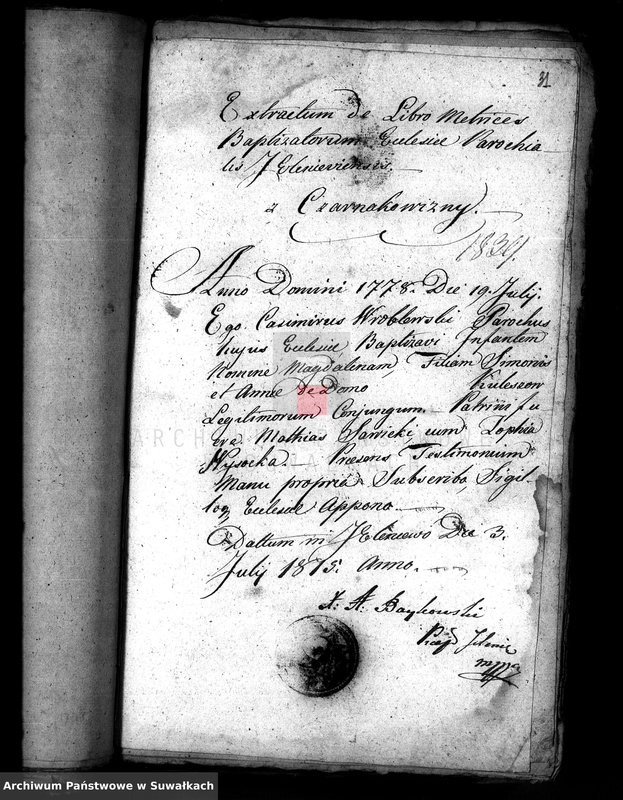 31
Extractum de Libro Metrices
Baptizatorum Eclesiæ Parochia
lis JElenieviensis.
z Czarnakowizny.
1839.
Anno Domini 1778. Die 19. Julij.
Ego Casimirus Wroblewski Parochus
hujus Eclesiæ, Baptizavi Infantem
Nomene Magdalenam, Filiam Simonis
et Annæ de Domo Kuleszow
Legitimorum Conjungum. Patrini fu
ere Mathias Sawicki cum Zophia
Wysocka. Præsens Testimonium
Manu propria Subscribo, Sigil
Eclesiæ Appono.
Dattum in JEleniewo Die 3.
Julij 1815. Anno.
X. A. Baykowski
Jelenie
mppa
Archiwum Państwowe w Suwałkach